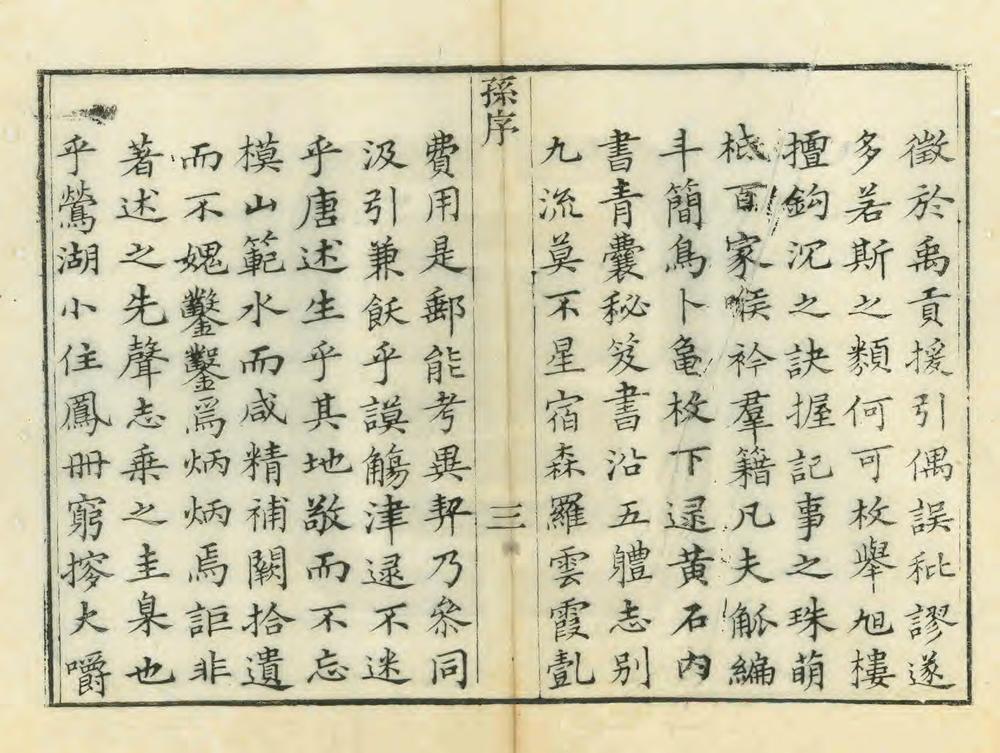 徵於禹貢援引偶誤秕謬遂
多若斯之類何可枚舉旭樓
擅鈎沉之訣握記事之珠萌
柢百家喉衿羣籍凡夫觚編
斗簡鳥卜龜枚下逯黄石內
書青囊秘笈書沿五軆志别
九流莫不星宿森羅雲霞㔶
孫序
三
費用是郵能考異契乃叅同
汲引兼飫乎謨觴津逮不迷
乎唐述生乎其地敬而不忘
模山範水而咸精補闕拾遺
而不媿鑿鑿爲炳炳焉詎非
著述之先聲志乘之圭臬也
乎鶯湖小住鳳冊窮搜大嚼